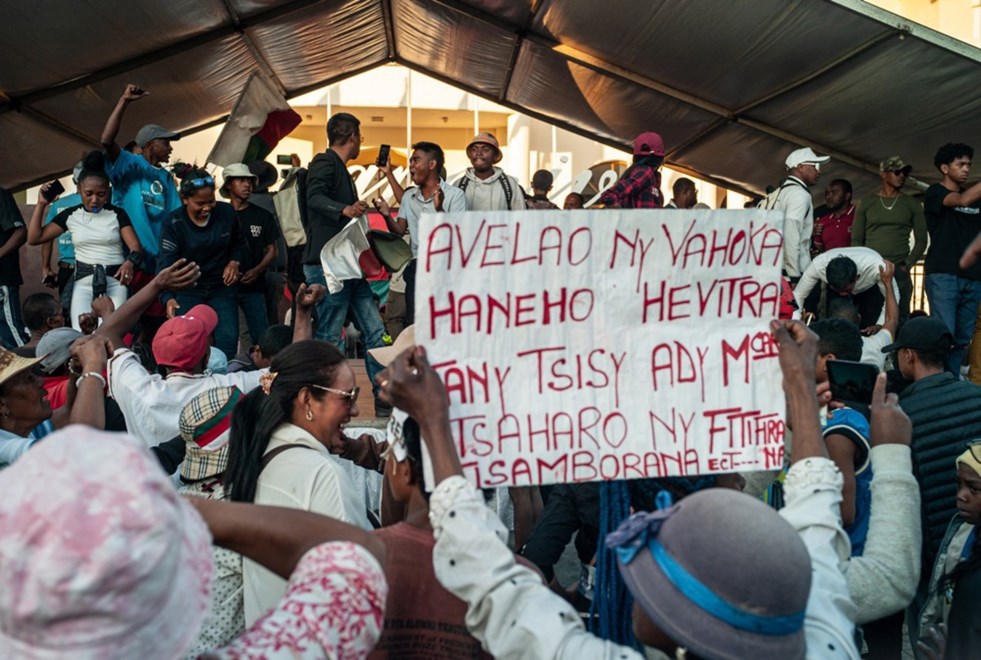 AVELAO NY VAHOKA
HANEHO HEVITRA
TANY TSISY ADY Mora
TSAHARO NY FTITHRA
TISAMBORANA ECT---- NA